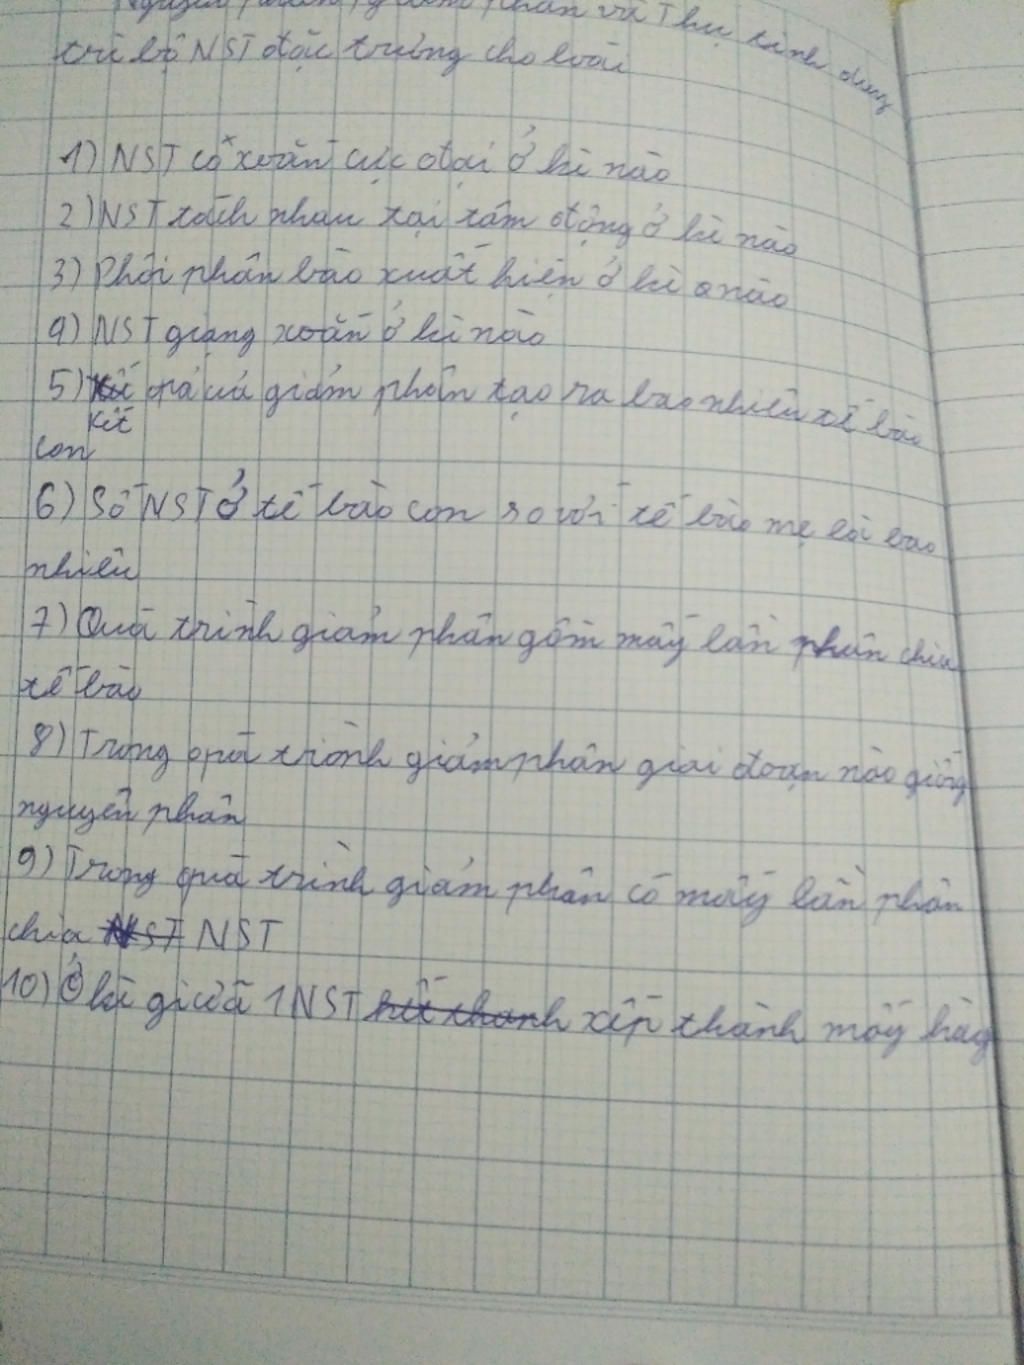 Nguyên phân, giảm phân và Thụ tinh duy
trì bộ NST đặc trưng cho loài
1) NST co xoắn cực đại ở kì nào
2) NST tách nhau tại tâm động ở kì nào
3) Thoi phân bào xuất hiện ở kì nào
4) NST giạng xoắn ở kì nào
5) quả uả giảm phân tạo ra bao nhiêu tế bào
Kết
con
6) Số NST Ở tế bào con so với tế bào mẹ là bao
nhiêu
7) Quá trình giảm phân gồm mấy lần phân chia
tế bào
8) Trong quá trình giảm phân giai đoạn nào giống
nguyên phân
9) Trong quá trình giảm phân có mấy lần phân
chia NST
10) Ở kì giữa 1 NST xếp thành mấy hàg